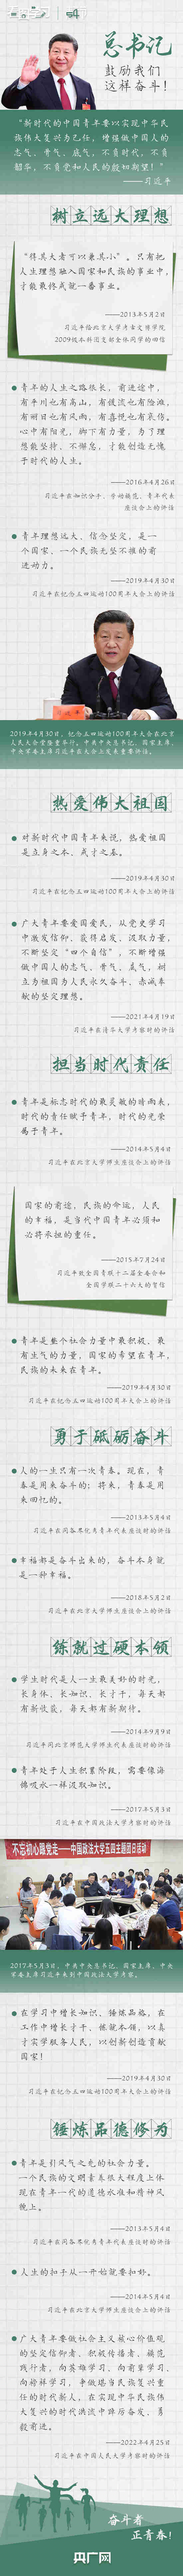 总书记
鼓励我们
这样奋斗！
“新时代的中国青年要以实现中华民
族伟大复兴为己任，增强做中国人的
志气、骨气、底气，不负时代，不负
韶华，不负党和人民的殷切期望！”
——习近平
树立远大理想
“得其大者可以兼其小”。只有把
人生理想融入国家和民族的事业中，
才能最终成就一番事业。
——2013年5月2日
习近平给北京大学考古文博学院
2009级本科团支部全体同学的回信
青年的人生之路很长，前进途中，
有平川也有高山，有缓流也有险滩，
有丽日也有风雨，有喜悦也有哀伤。
心中有阳光，脚下有力量，为了理
想能坚持、不懈怠，才能创造无愧
于时代的人生。
——2016年4月26日
习近平在知识分子、劳动模范、青年代表
座谈会上的讲话
青年理想远大、信念坚定，是一
个国家、一个民族无坚不摧的前
进动力。
——2019年4月30日
习近平在纪念五四运动100周年大会上的讲话
习近平
2019年4月30日，纪念五四运动100周年大会在北京
人民大会堂隆重举行。中共中央总书记、国家主席、
中央军委主席习近平在大会上发表重要讲话。
热爱伟大祖国
对新时代中国青年来说，热爱祖国
是立身之本、成才之基。
——2019年4月30日
习近平在纪念五四运动100周年大会上的讲话
广大青年要爱国爱民，从党史学习
中激发信仰、获得启发、汲取力量，
不断坚定“四个自信”，不断增强
做中国人的志气、骨气、底气，树
立为祖国为人民永久奋斗、赤诚奉
献的坚定理想。
——2021年4月19日
习近平在清华大学考察时的讲话
担当时代责任
青年是标志时代的最灵敏的晴雨表，
时代的责任赋予青年，时代的光荣
属于青年。
——2014年5月4日
习近平在北京大学师生座谈会上的讲话
国家的前途，民族的命运，人民
的幸福，是当代中国青年必须和
必将承担的重任。
——2015年7月24日
习近平致全国青联十二届全委会和
全国学联二十六大的贺信
青年是整个社会力量中最积极、最
有生气的力量，国家的希望在青年，
民族的未来在青年。
——2019年4月30日
习近平在纪念五四运动100周年大会上的讲话
勇于砥砺奋斗
人的一生只有一次青春。现在，青
春是用来奋斗的；将来，青春是用
来回忆的。
——2013年5月4日
习近平在同各界优秀青年代表座谈时的讲话
幸福都是奋斗出来的，奋斗本身就
是一种幸福。
——2018年5月2日
习近平在北京大学师生座谈会上的讲话
练就过硬本领
学生时代是人一生最美好的时光，
长身体、长知识、长才干，每天都
有新收获，每天都有新期待。
——2014年9月9日
习近平同北京师范大学师生代表座谈时的讲话
青年处于人生积累阶段，需要像海
绵吸水一样汲取知识。
——2017年5月3日
习近平在中国政法大学考察时的讲话
不忘初心跟党走——中国政法大学五四主题团日活动
2017年5月3日，中共中央总书记、国家主席、中央
军委主席习近平来到中国政法大学考察。
在学习中增长知识、锤炼品格，在
工作中增长才干、练就本领，以真
才实学服务人民，以创新创造贡献
国家！
——2019年4月30日
习近平在纪念五四运动100周年大会上的讲话
锤炼品德修为
青年是引风气之先的社会力量。
一个民族的文明素养很大程度上体
现在青年一代的道德水准和精神风
貌上。
——2013年5月4日
习近平在同各界优秀青年代表座谈时的讲话
人生的扣子从一开始就要扣好。
——2014年5月4日
习近平在北京大学师生座谈会上的讲话
广大青年要做社会主义核心价值观
的坚定信仰者、积极传播者、模范
践行者，向英雄学习、向前辈学习、
向榜样学习，争做堪当民族复兴重
任的时代新人，在实现中华民族伟
大复兴的时代洪流中踔厉奋发、勇
毅前进。
——2022年4月25日
习近平在中国人民大学考察时的讲话
奋斗者
正青春！
央广网